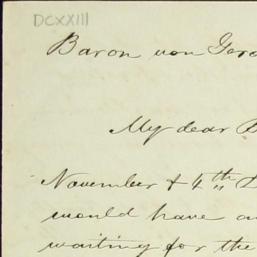 DCXXIII
Baron von
My dear
November & 4th
would have
waiting for the